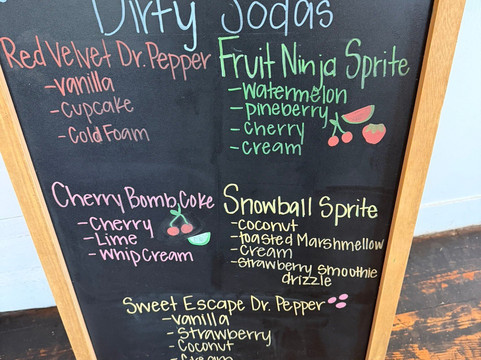 Dirty Sodas
Red Velvet Dr. Pepper
- vanilla
- cupcake
- Cold Foam
Fruit Ninja Sprite
- watermelon
- pineberry
- cherry
- cream
Cherry Bomb Coke
- Cherry
- Lime
- Whip Cream
Snowball Sprite
- coconut
- toasted Marshmellow
- Cream
- strawberry smoothie
drizzle
Sweet Escape Dr. Pepper
- vanilla
- strawberry
- Coconut
- Cream